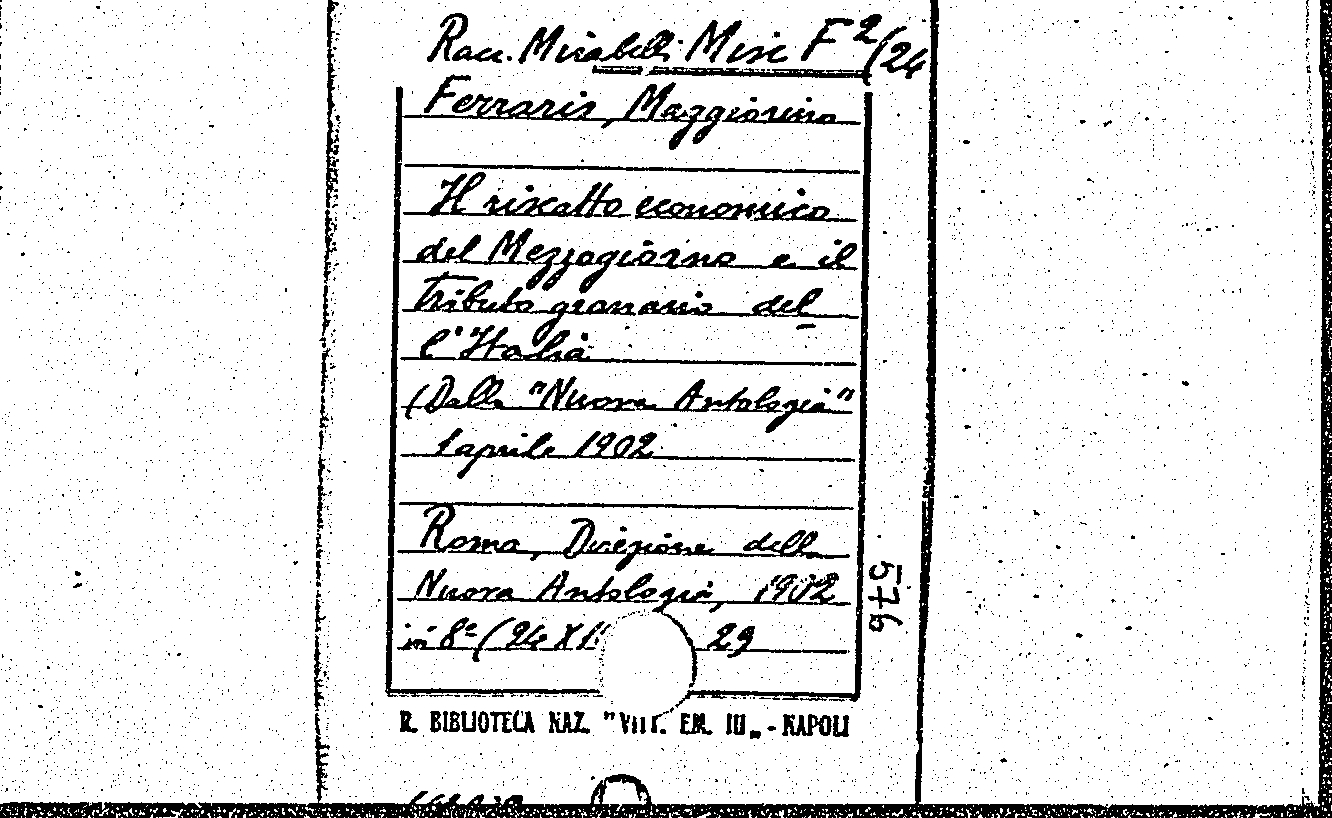 Racc. Mirabelli Misc F²/24
Ferraris, Maggiorino
Il riscatto economico
del Mezzogiorno e il
Tributo granario del
l'Italia
(Dalla "Nuova Antologia"
1 aprile 1902
Roma, Direzione della
Nuova Antologia, 1902
in 8º (24 X 29
576
R. BIBLIOTECA NAZ. "VITT. EM. III„ - NAPOLI